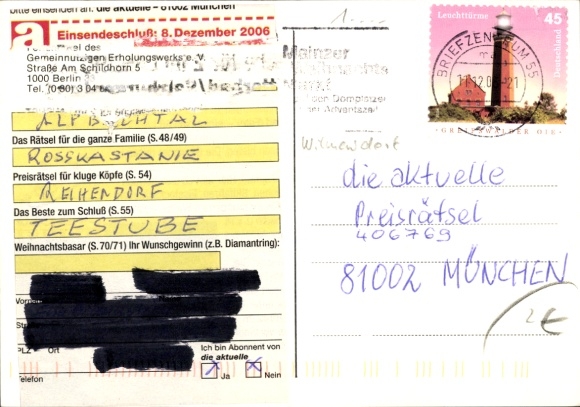 Bitte einsenden an: die aktuelle - 81002 München
a Einsendeschluß: 8. Dezember 2006
des
Gemeinnützigen Erholungswerks e. V.
Straße Am Schildhorn 5
1000 Berlin
Tel.
ALPBACHTAL
Das Rätsel für die ganze Familie (S.48/49)
ROSSKASTANIE
Preisrätsel für kluge Köpfe (S. 54)
REIHENDORF
Das Beste zum Schluß (S.55)
TEESTUBE
Weihnachtsbasar (S.70/71) Ihr Wunschgewinn (z.B. Diamantring):
PLZ Ort
Telefon
Ich bin Abonnent von
die aktuelle
Ja Nein
1
Mainzer
Leuchttürme 45
Deutschland
GREIFSWALDER OIE
BRIEFZENTRUM 55
die aktuelle
Preisrätsel
406769
81002 MÜNCHEN
2€